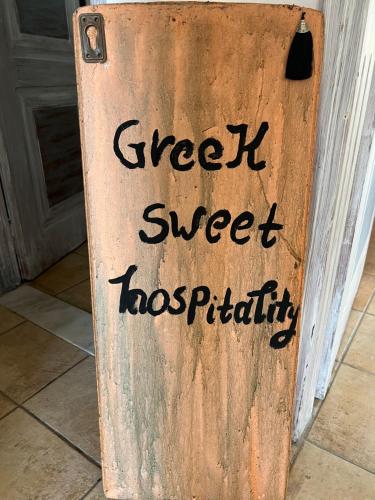 GreeK
Sweet
hosPitality